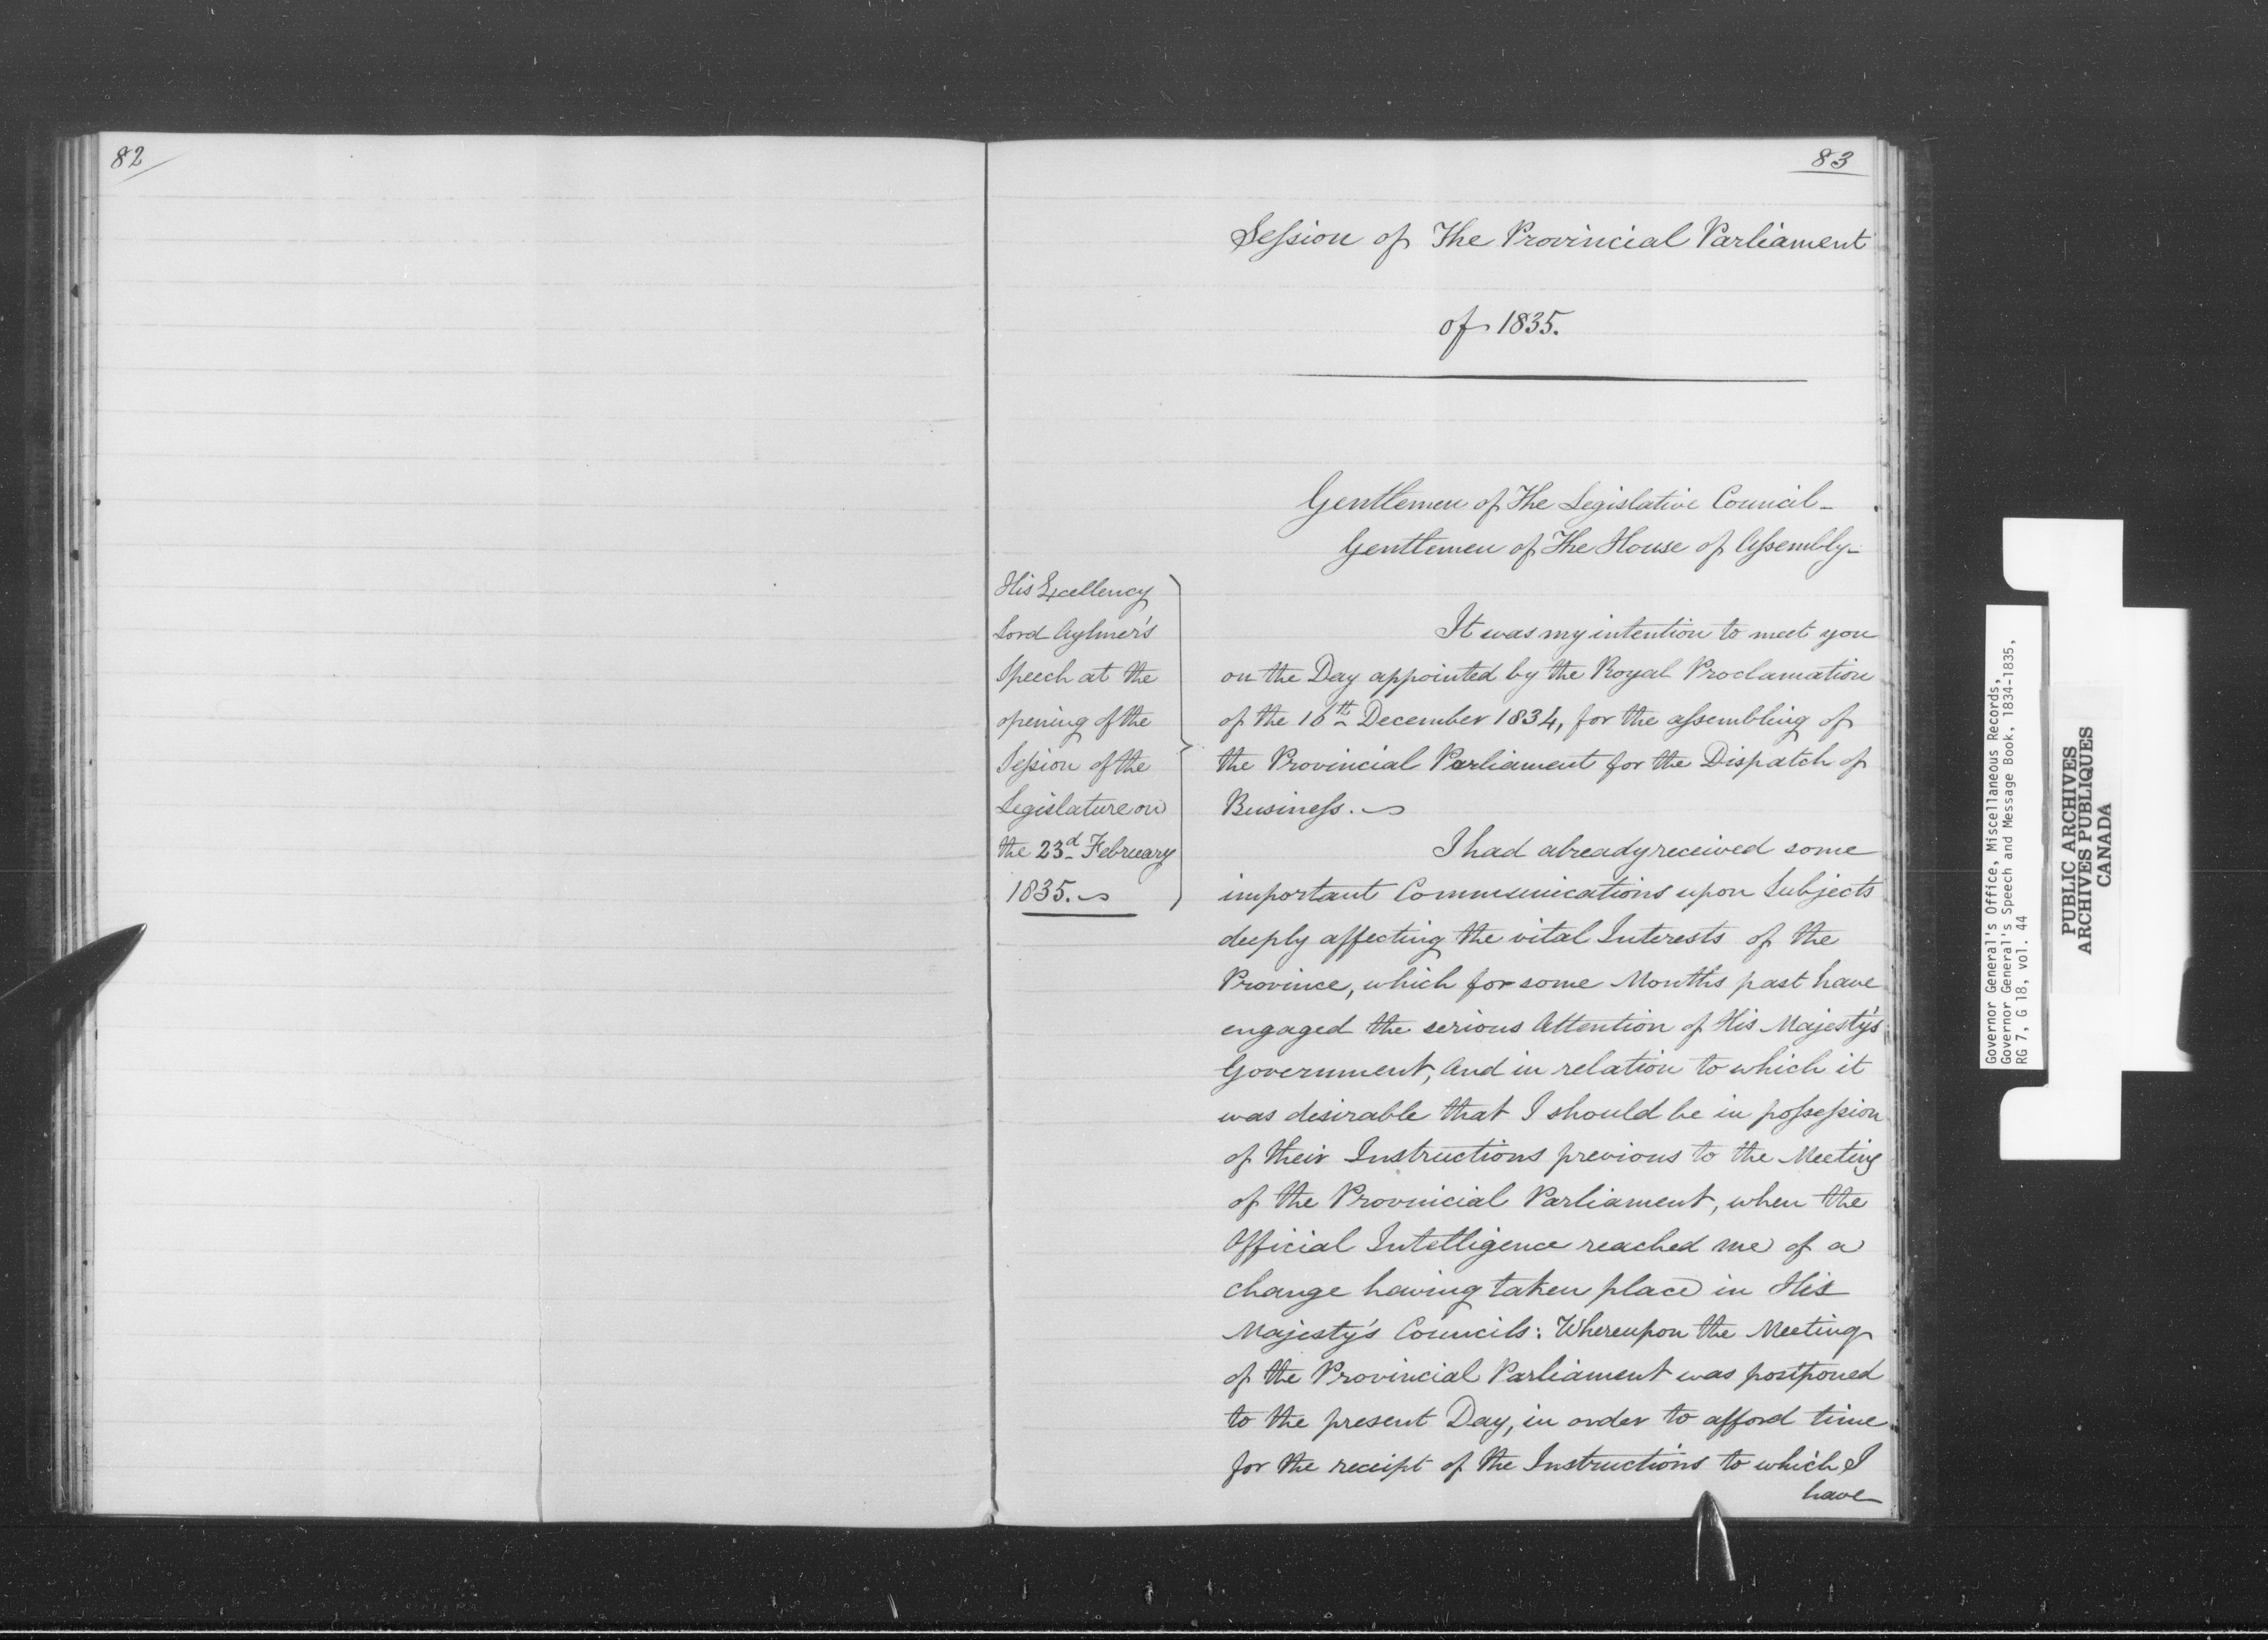 82
83
Session of The Provincial Parliament
of 1835.
Gentlemen of The Legislative Council_
Gentlemen of The House of Assembly_
His Excellency
Lord Aylmer's
Speech at the
opening of the
Session of the
Legislature on
the 23d February
1835.
It was my intention to meet you
on the Day appointed by the Royal Proclamation
of the 16th December 1834, for the assembling of
the Provincial Parliament for the Dispatch of
Business.
I had already received some
important Communications upon Subjects
deeply affecting the vital Interests of the
Province, which for some Months past have
engaged the serious Attention of His Majesty's
Government, and in relation to which it
was desirable that I should be in possession
of their Instructions previous to the Meeting
of the Provincial Parliament, when the
Official Intelligence reached me of a
change having taken place in His
Majesty's Councils: Whereupon the Meeting
of the Provincial Parliament was postponed
to the present Day, in order to afford time
for the receipt of the Instructions to which I
have
Governor General's Office, Miscellaneous Records,
Governor General's Speech and Message Book, 1834-1835,
RG 7, G 18, vol. 44
PUBLIC ARCHIVES
ARCHIVES PUBLIQUES
CANADA